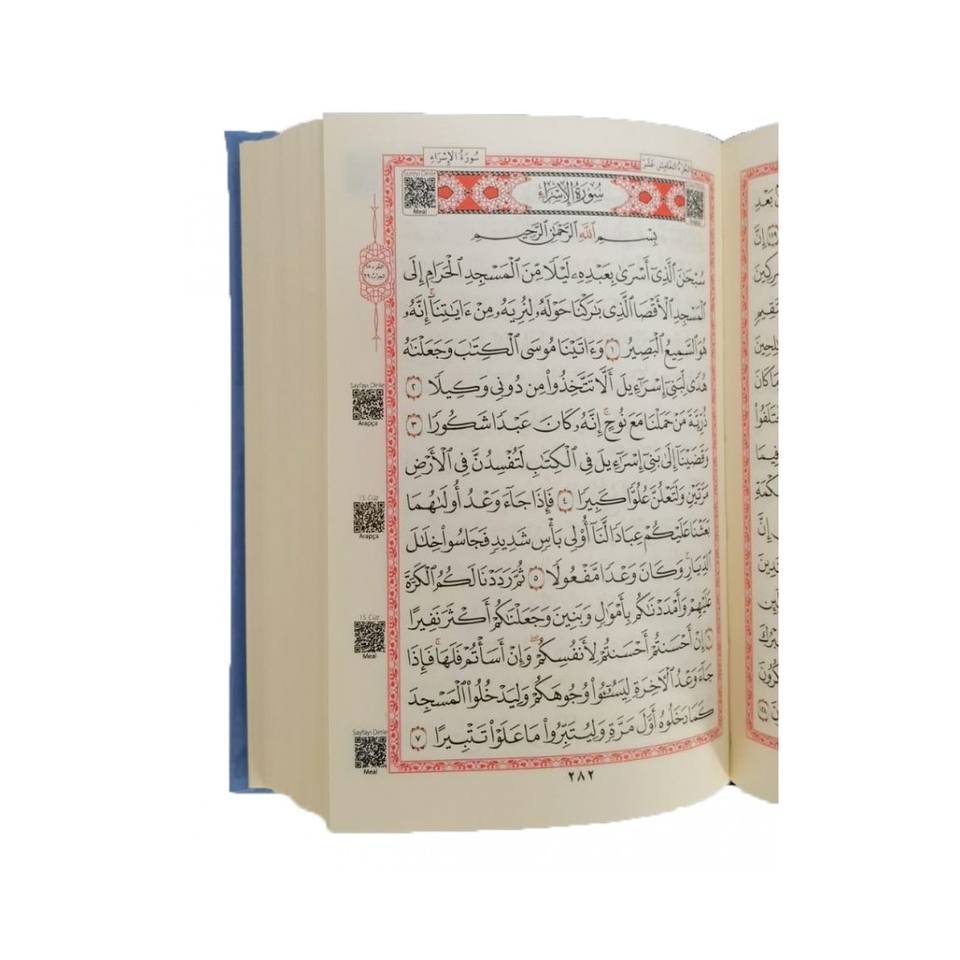 سُورَةُ الإِسْرَاءِ
الجُزْءُ الخَامِسَ عَشَرَ
Sayfayı Dinle
Meal
سُورَةُ الإِسْرَاءِ
بِسْمِ ٱللَّهِ ٱلرَّحْمَٰنِ ٱلرَّحِيمِ
سُبْحَٰنَ ٱلَّذِىٓ أَسْرَىٰ بِعَبْدِهِۦ لَيْلًا مِّنَ ٱلْمَسْجِدِ ٱلْحَرَامِ إِلَى
ٱلْمَسْجِدِ ٱلْأَقْصَا ٱلَّذِى بَٰرَكْنَا حَوْلَهُۥ لِنُرِيَهُۥ مِنْ ءَايَٰتِنَآ ۚ إِنَّهُۥ
هُوَ ٱلسَّمِيعُ ٱلْبَصِيرُ ١ وَءَاتَيْنَا مُوسَى ٱلْكِتَٰبَ وَجَعَلْنَٰهُ
هُدًى لِّبَنِىٓ إِسْرَٰٓءِيلَ أَلَّا تَتَّخِذُوا۟ مِن دُونِى وَكِيلًا ٢
ذُرِّيَّةَ مَنْ حَمَلْنَا مَعَ نُوحٍ ۚ إِنَّهُۥ كَانَ عَبْدًا شَكُورًا ٣
وَقَضَيْنَآ إِلَىٰ بَنِىٓ إِسْرَٰٓءِيلَ فِى ٱلْكِتَٰبِ لَتُفْسِدُنَّ فِى ٱلْأَرْضِ
مَرَّتَيْنِ وَلَتَعْلُنَّ عُلُوًّا كَبِيرًا ٤ فَإِذَا جَآءَ وَعْدُ أُولَىٰهُمَا
بَعَثْنَا عَلَيْكُمْ عِبَادًا لَّنَآ أُو۟لِى بَأْسٍ شَدِيدٍ فَجَاسُوا۟ خِلَٰلَ
ٱلدِّيَارِ ۚ وَكَانَ وَعْدًا مَّفْعُولًا ٥ ثُمَّ رَدَدْنَا لَكُمُ ٱلْكَرَّةَ
عَلَيْهِمْ وَأَمْدَدْنَٰكُم بِأَمْوَٰلٍ وَبَنِينَ وَجَعَلْنَٰكُمْ أَكْثَرَ نَفِيرًا
٦ إِنْ أَحْسَنتُمْ أَحْسَنتُمْ لِأَنفُسِكُمْ ۖ وَإِنْ أَسَأْتُمْ فَلَهَا ۚ فَإِذَا
جَآءَ وَعْدُ ٱلْءَاخِرَةِ لِيَسُۥٓـُٔوا۟ وُجُوهَكُمْ وَلِيَدْخُلُوا۟ ٱلْمَسْجِدَ
كَمَا دَخَلُوهُ أَوَّلَ مَرَّةٍ وَلِيُتَبِّرُوا۟ مَا عَلَوْا۟ تَتْبِيرًا ٧
٢٨٢
Sayfayı Dinle
Arapça
15. Cüz
Arapça
15. Cüz
Meal
Sayfayı Dinle
Meal